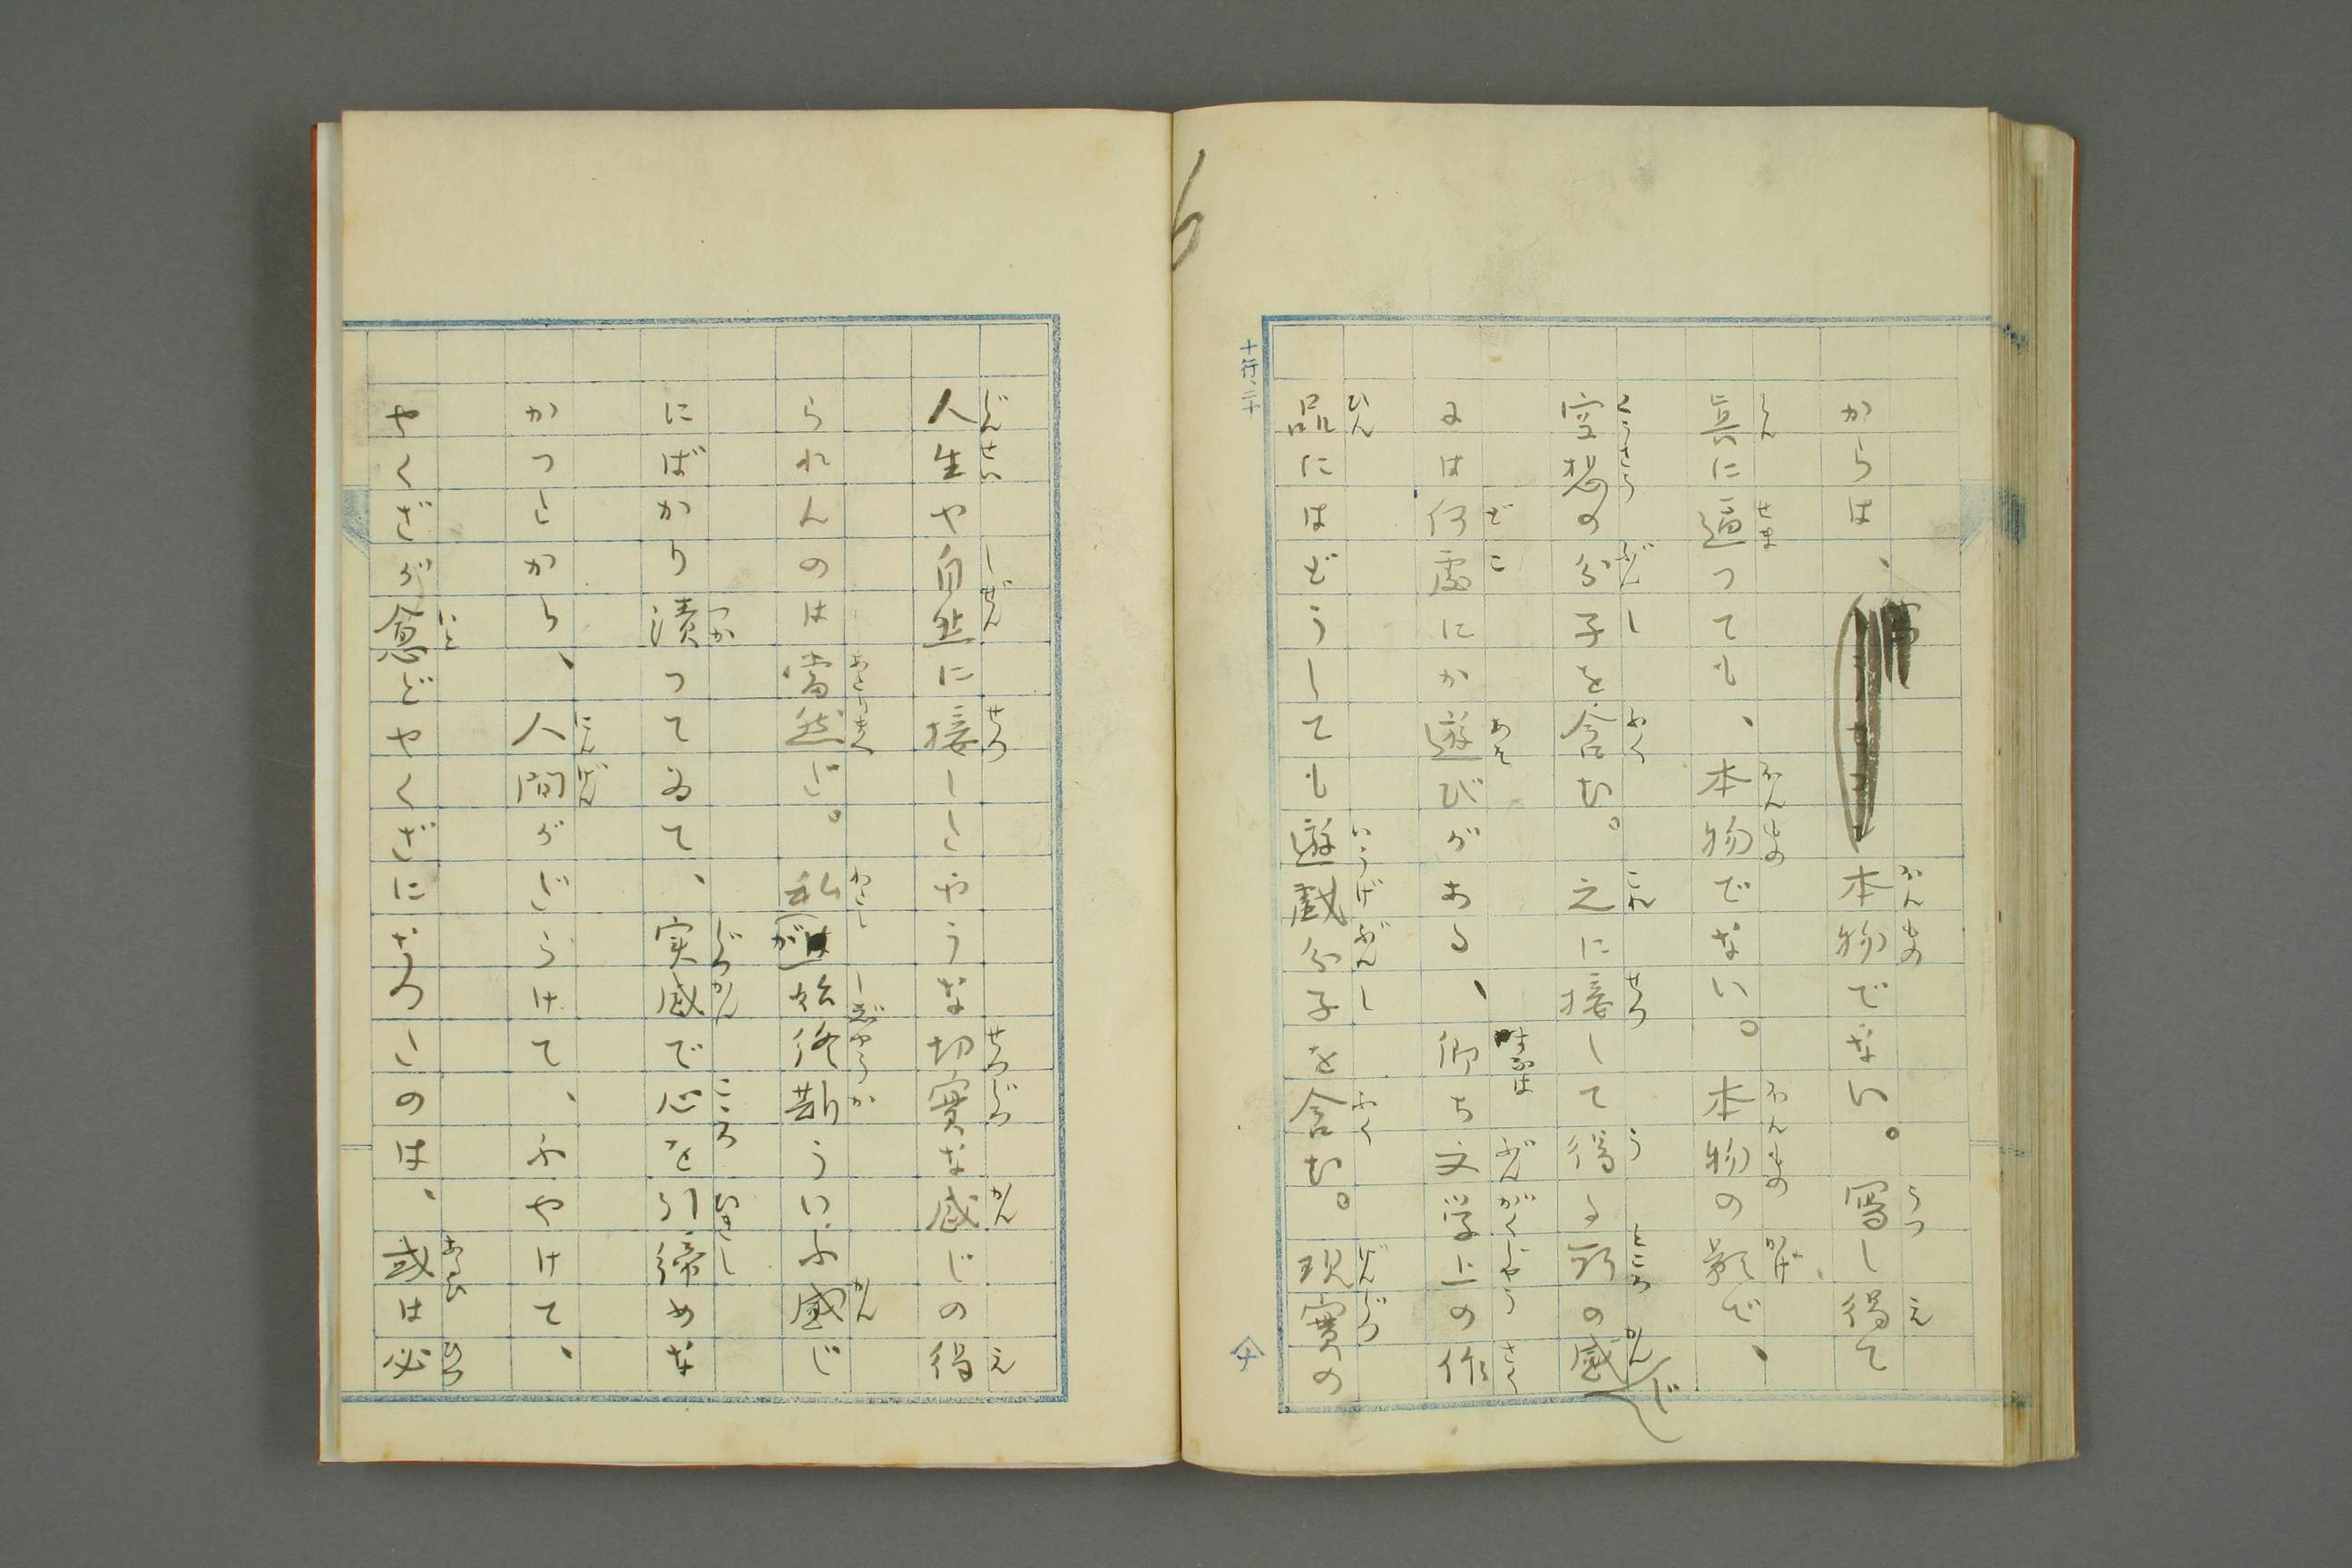 からは、本物でない。寫し得て
眞に逼つても、本物でない。本物の影で、
空想の分子を含む。之に接して得る所の感じ
には何處にか遊びがある、即ち文學上の作
品にはどうしても遊戯分子を含む。現實の
十行、二十
人生や自然に接したやうな切實な感じの得
られんのは當然だ。私が始終斯ういふ感じ
にばかり漬つてゐて、実感で心を引締めな
かつたから、人間がだらけて、ふやけて、
やくざが愈どやくざになつたのは、或は必